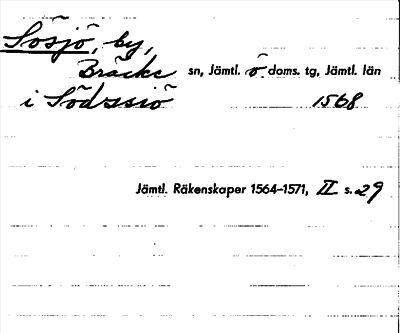 Sösjö, by,
Bräcke sn, Jämtl. ö. doms. tg, Jämtl. län
i Södessiö 1568
Jämtl. Räkenskaper 1564–1571, II s. 29